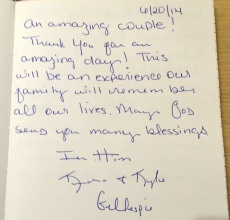 6/20/14
an amazing couple!
Thank you for an
amazing day! This
will be an experience our
family will remember
all our lives. May God
send you many blessings
In Him
& Kyle
Gillespie